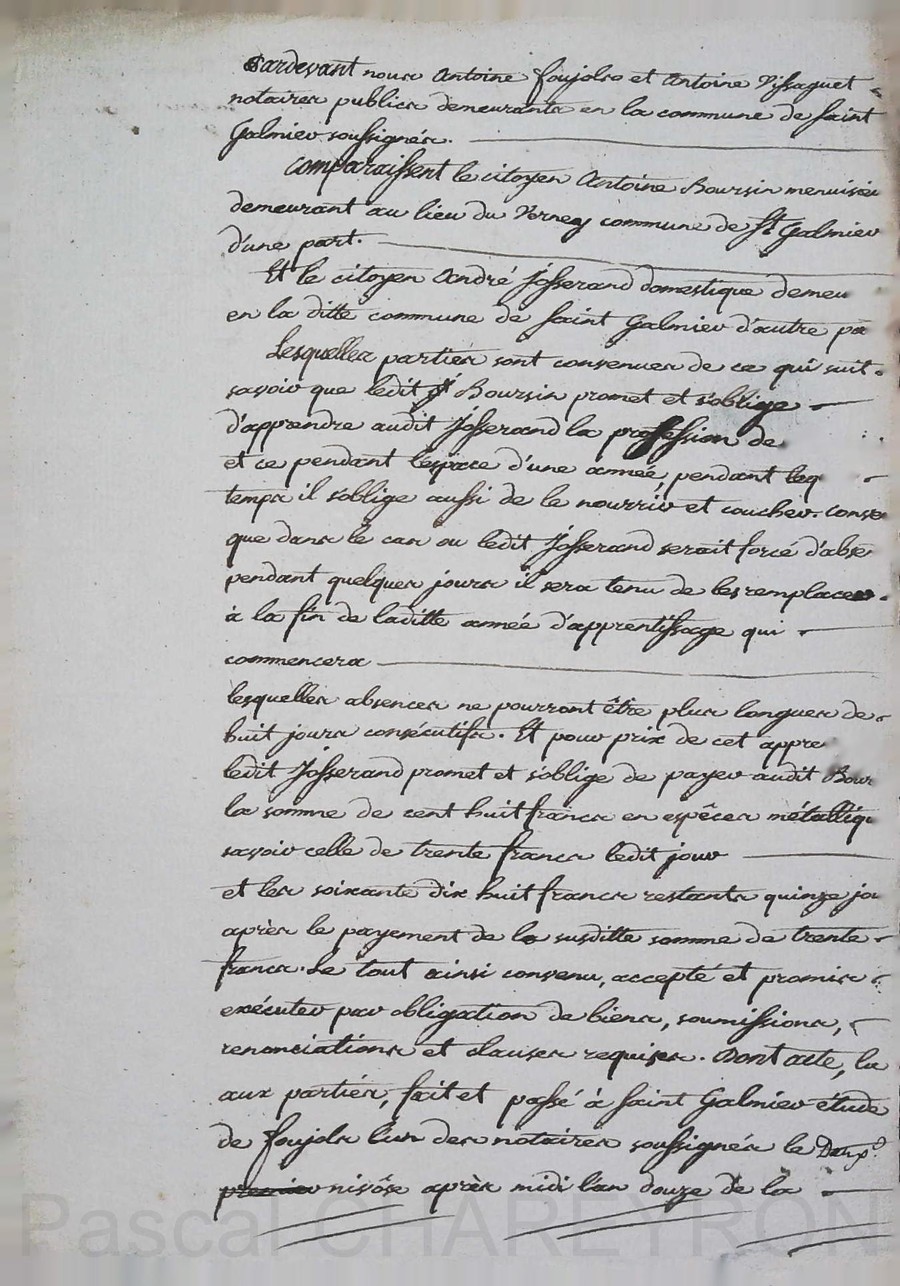 Pardevant nous Antoine foujols et Antoine Vissaguet
notaires publics demeurants en la commune de saint
Galmier soussignés.
Comparaissent le citoyen Antoine Boursin menuisier
demeurant au lieu du Verney commune de St Galmier
d'une part.
Et le citoyen André Josserand domestique demeu
en la ditte commune de saint Galmier d'autre pa
Lesquelles parties sont convenues de ce qui suit
savoir que ledit Boursin promet et s'oblige
d'apprendre audit Josserand la profession de
et ce pendant l'espace d'une année, pendant leq
temps il s'oblige aussi de le nourrir et coucher. conve
que dans le cas ou ledit Josserand serait forcé d'abse
pendant quelques jours il sera tenu de les remplacer
à la fin de laditte année d'apprentissage qui
commencera
lesquelles absences ne pourront être plus longues de
huit jours consécutifs. Et pour prix de cet appre
ledit Josserand promet et s'oblige de payer audit Bour
la somme de cent huit francs en espêces métalliq
savoir celle de trente francs ledit jour
et les soixante dix huit francs restants quinze jou
après le payement de la susditte somme de trente
francs. Le tout ainsi convenu, accepté et promis
exécuter par obligation de biens, soumissions,
renonciations et clauses requises. Dont acte, lu
aux parties, fait et passé à saint Galmier étude
de foujols l'un des notaires soussignés le
premier nivôse après midi l'an douze de la
Pascal CHAREYRON